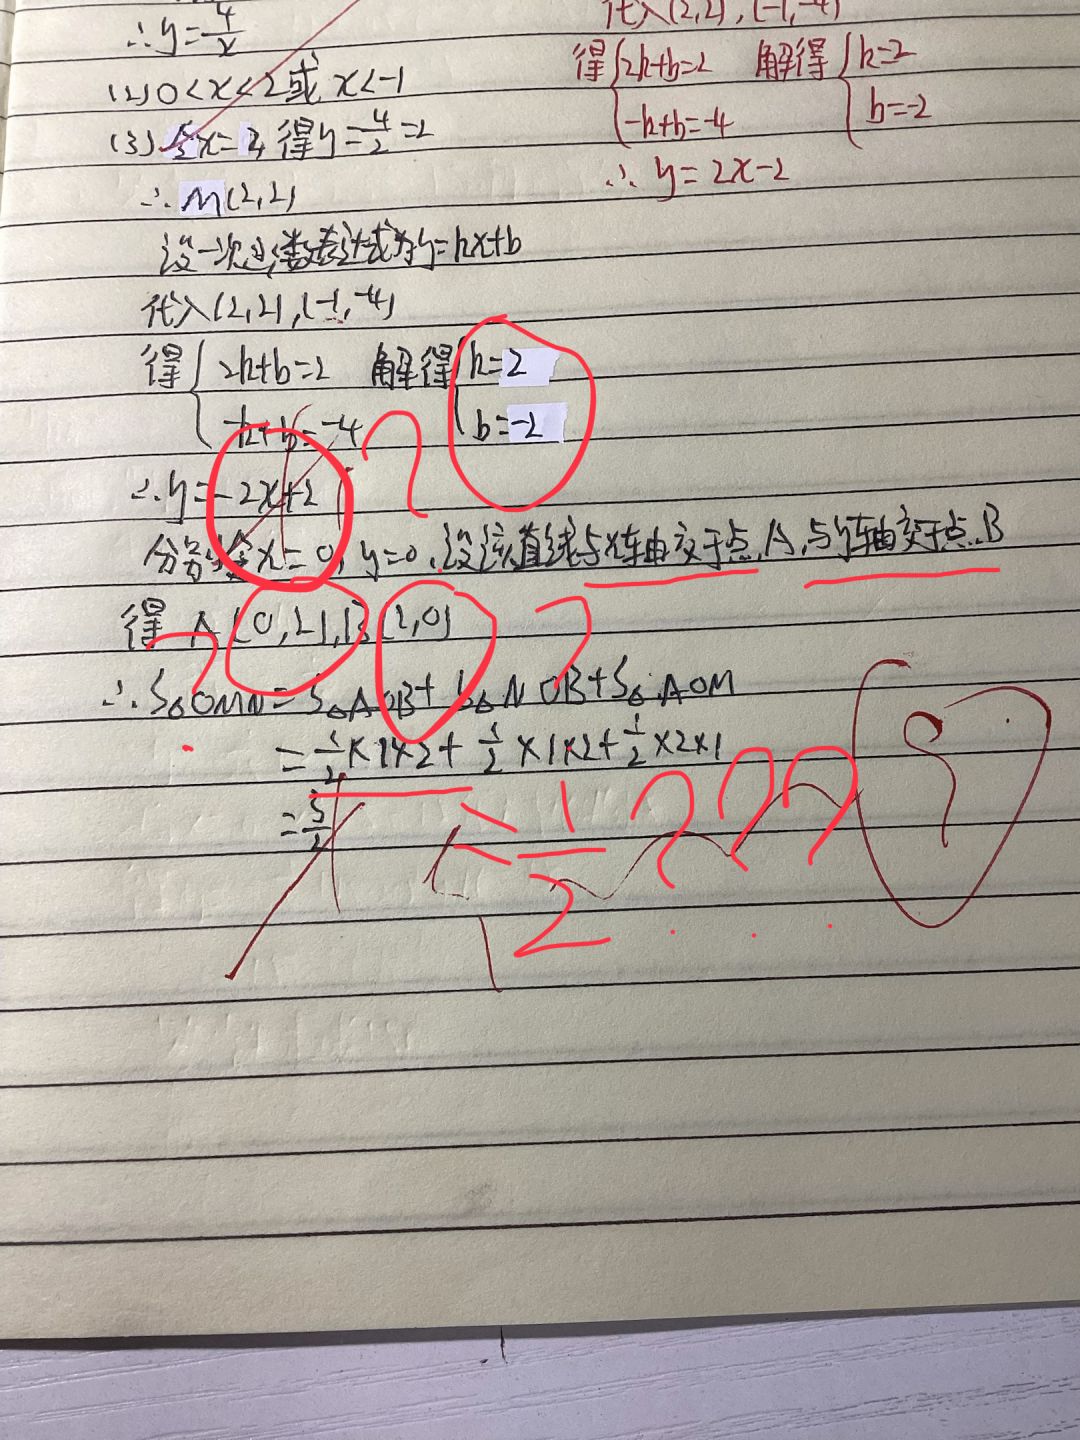 ∴y=4/x
(2) 0<x<2或x<-1
(3) 令x=2, 得y=4/2=2
∴M(2,2)
设一次函数表达式为y=kx+b
代入(2,2),(-1,-4)
得{2k+b=2 解得{k=2
-k+b=-4 b=-2
∴y=-2x+2
分别令x=0,y=0,设该直线与x轴交于点A,与y轴交于点B
得A(0,2),B(1,0)
∴S△OMN=S△AOB+S△NOB+S△AOM
=1/2×1×2+1/2×1×2+1/2×2×1
=5/2
代入(2,2),(-1,-4)
得{2k+b=2 解得{k=2
-k+b=-4 b=-2
∴y=2x-2
?
? ?
1/2 ? ? ?
?